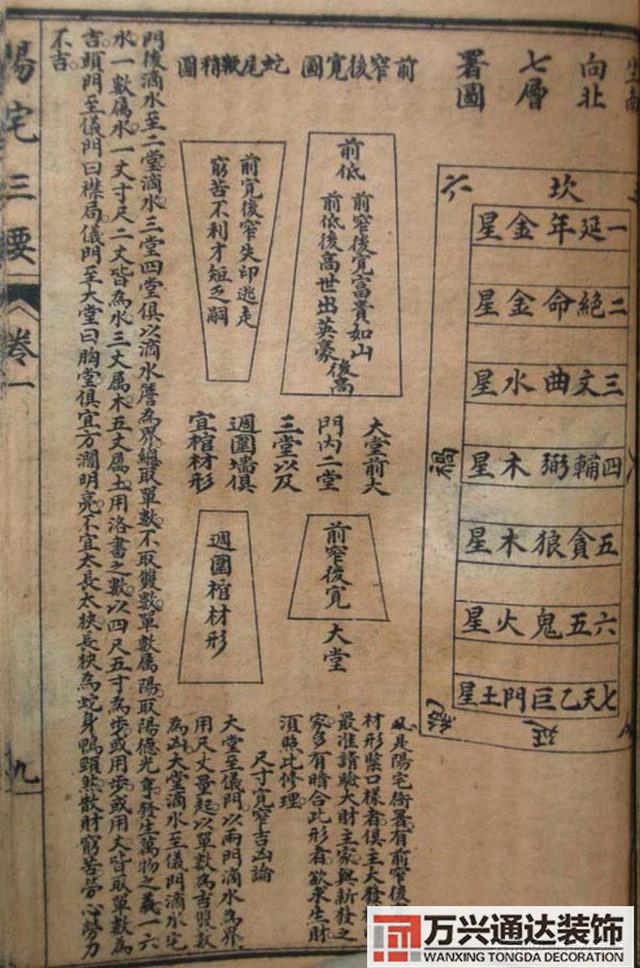 坐南
向北
七層
署圖
坎
六
一延年金星
二絕命金星
三文曲水星
四輔弼木星
五貪狼木星
六五鬼火星
七天乙巨門土星
禍
絕
延
前窄後寬圖
前低
前窄後寬富貴如山
前低後高世出英豪
後高
蛇尾鞭稍圖
前寬後窄失印逃走
窮苦不利才短乏嗣
大堂前大
門內二堂
三堂以及
週圍墻俱
宜棺材形
前窄後寬
大堂
週圍棺材形
凡是陽宅衙署有前窄後
材形葉口樣者俱主大發
最准請驗大財主家與新發之
家多有暗合此形者欲求生財
須照此修理
尺寸寬窄吉凶論
大堂至儀門以兩門滴水為界
用尺丈量起以單數為吉雙數
為凶大堂滴水至儀門滴水宅
門後滴水至二堂滴水三堂四堂俱以滴水簷為界總取單數不取雙數單數屬陽取陽德光亨發生萬物之義一六
水一數屬水一丈寸尺二丈皆為水三丈屬木五丈屬土用洛書之數以四尺五寸為步或用步或用丈皆取單數為
吉頭門至儀門曰襟局儀門至大堂曰胸堂俱宜方濶明亮不宜太長太狹長狹為蛇身鴨頸煞散財窮苦勞心勞力
不吉
陽宅三要
卷一
九
万兴通达装饰
WANXING TONGDA DECORATION